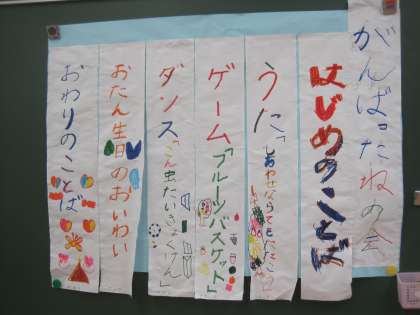 がんばったねの会
はじめのことば
うた「しあわせならてをたたこう」
ゲーム「フルーツバスケット」
ダンス「こん虫たいきょくけん」
おたん生日のおいわい
おわりのことば